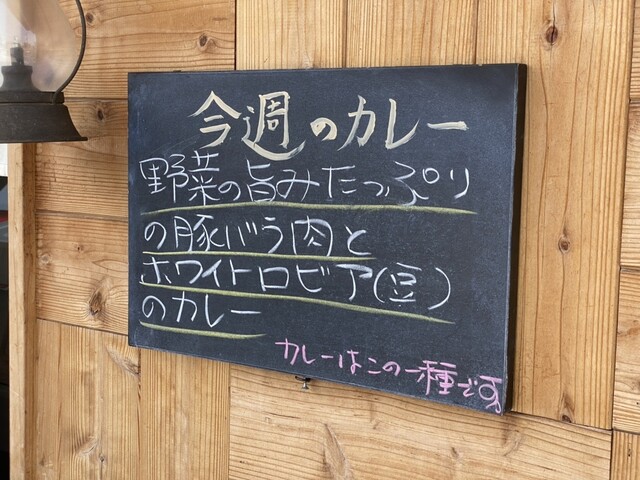 今週のカレー
野菜の旨みたっぷり
の豚バラ肉と
ホワイトロビア(豆)
のカレー
カレーはこの一種です